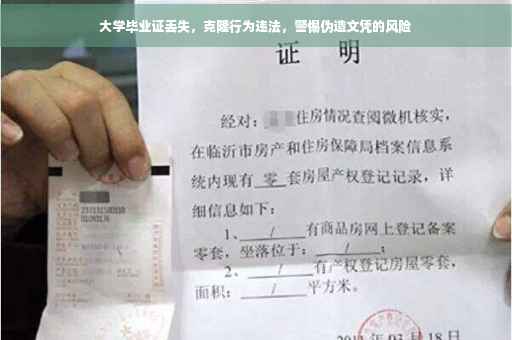 大学毕业证丢失，克隆行为违法，警惕伪造文凭的风险
证 明
经对：住房情况查阅微机核实，
在临沂市房产和住房保障局档案信息系
统内现有 零 套房屋产权登记记录，详
细信息如下：
1、 / 有商品房网上登记备案
零套，坐落位于： / ；
2、 / 有产权登记房屋零套，
面积： / 平方米。
03 月 18 日